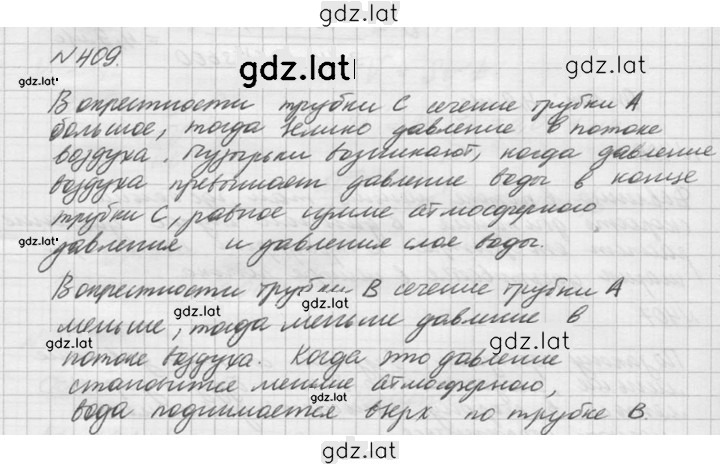 gdz.lat
N409.
gdz.lat
gdz.lat
gdz.lat
В окрестности трубки С сечение трубки А
большое, тогда велико давление в потоке
воздуха. Пузырьки возникают, когда давление
воздуха превышает давление воды в конце
трубки С, равное сумме атмосферного
gdz.lat
gdz.lat
давления и давления слое воды.
gdz.lat
В окрестности трубки В сечение трубки А
gdz.lat
gdz.lat
меньше, тогда меньше давление в
gdz.lat
потоке воздуха. Когда это давление
становится меньше атмосферного,
вода поднимается вверх по трубке В.
gdz.lat